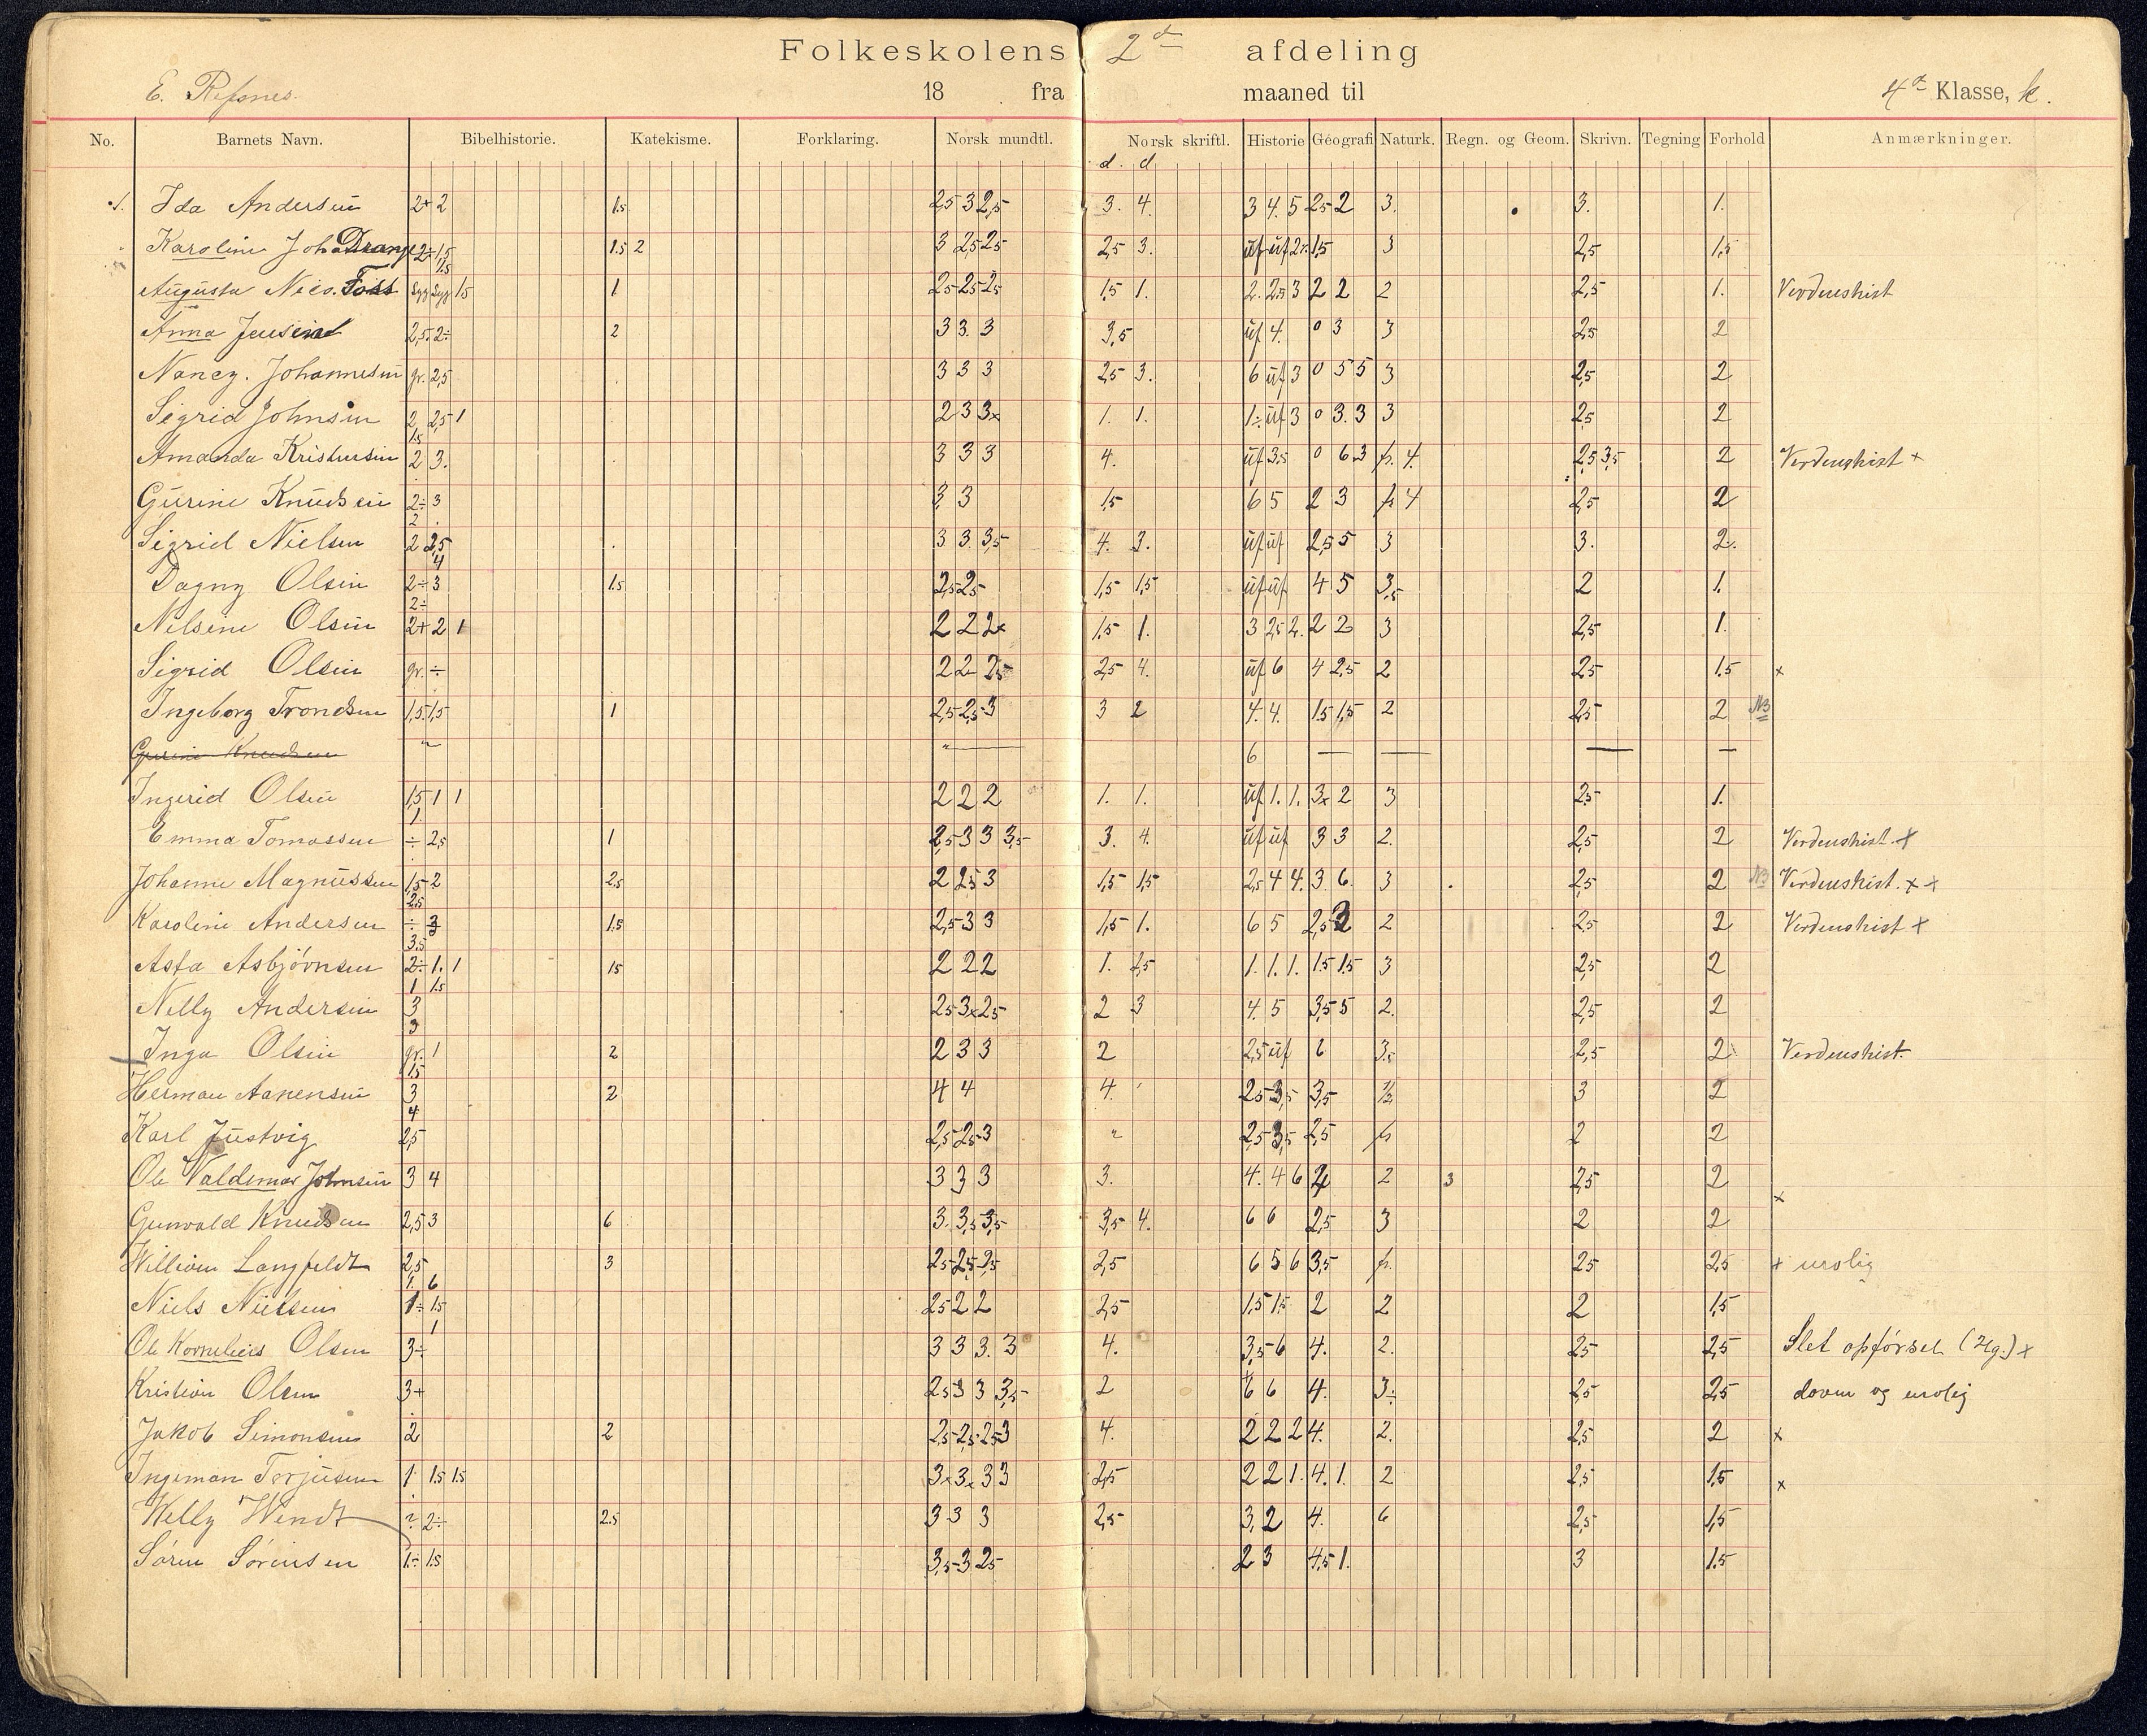 Folkeskolens 2d afdeling
E. Refsnes. 18 fra maaned til 4d Klasse, k.
No. Barnets Navn. Bibelhistorie. Katekisme. Forklaring. Norsk mundtl. Norsk skriftl. Historie Géografi Naturk. Regn. og Geom. Skrivn. Tegning Forhold Anmærkninger.
d. d
1. Ida Andersen 2+ 2 1.5 2,5 3 2,5 3. 4. 3 4. 5 2,5 2 3. 3. 1.
Karoline Joh. Drange 2÷ 1,5 1.5 1.5 2 3 2,5 2,5 2,5 3. uf uf 1,5 3 2,5 1,5
Augusta Nico. Foss Syg Syg 1,5 1 2,5 2,5 2,5 1,5 1. 2. 2,5 3 2 2 2 2,5 1. Verdenshist
Anna Jensen 2,5 2÷ 2 3 3. 3 3,5 uf 4. 0 3 3 2,5 2
Nancy. Johannesen gr. 2,5 3 3 3 2,5 3. 6 uf 3 0 5 5 3 2,5 2
Sigrid Johnsen 2 2,5 1 1.5 2 3 3x 1. 1. 1÷ uf 3 0 3. 3 3 2,5 2
Amanda Kristensen 2 3. 3 3 3 4. uf 3,5 0 6 3 fr. 4. 2,5 3,5 2 Verdenshist +
Gurine Knudsen 2÷ 3 2 3 3 1,5 6 5 2 3 fr 4 2,5 2
Sigrid Nielsen 2 2,5 4 3 3. 3,5 4. 3. uf uf 2,5 5 3 3. 2.
Dagny Olsen 2÷ 3 2÷ 1.5 2,5 2,5 1,5 1,5 uf uf 4 5 3,5 2 1.
Nelsine Olsen 2+ 2 1 2 2 2x 1,5 1. 3 2,5 2. 2 2 3 2,5 1.
Sigrid Olsen gr. ÷ 2 2 2,5 2,5 4. uf 6 4 2,5 2 2,5 1.5 x
Ingeborg Trondsen 1,5 1,5 1 2,5 2,5 3 3 2 4. 4. 1.5 1,5 2 2,5 2 NB
Gurine Knudsen " " 6 — — — —
Ingerid Olsen 1,5 1 1 1. 2 2 2 1. 1. uf 1. 1. 3x 2 3 2,5 1.
Emma Tomassen ÷ 2,5 1 2,5 3 3 3,5 3. 4. uf uf 3 3 2. 2,5 2 Verdenshist. +
Johanne Magnussen 1,5 2 2,5 2,5 2 2,5 3 1,5 1,5 2,5 4 4. 3 6. 3 2,5 2 NB Verdenshist. x +
Karoline Andersen ÷ 3 3,5 1,5 2,5 3 3 1,5 1. 6 5 2,5 2 2,5 2 Verdenshist +
Asta Asbjörnsen 2÷ 1. 1 1 1.5 1,5 2 2 2 1. 2,5 1. 1. 1. 1.5 1.5 3 2,5 2
Nelly Andersen 3 3 2,5 3x 2,5 2 3 4. 5 3,5 5 2. 2,5 2
Inga Olsen gr. 1 1,5 2 2 3 3 2 2,5 uf 6 3. 2,5 2 Verdenshist.
Herman Aanensen 3 4 2 4 4 4. 2,5 3,5 3,5 3 2
Karl Justvig 2,5 2,5 2,5 3 " 2,5 3,5 2,5 fr 2 2
Ole Valdemar Johnsen 3 4 3 3 3 3. 4. 4 6 2 3 2,5 2 x
Gunvald Knudsen 2,5 3 6 3. 3,5 3,5 3,5 4. 6 6 2,5 3 2 2
William Langfeldt 2,5 1. 6 3 2,5 2,5 2,5 2,5 6 5 6 3,5 fr. 2,5 2,5 + urolig
Niels Nielsen 1÷ 1.5 1 2,5 2 2 2,5 1,5 1,5 2 2 2 1,5
Ole Kornelius Olsen 3÷ 3 3 3. 3 4. 3,5 6 4. 2. 2,5 2,5 Slet opförsel x
Kristian Olsen 3+ 2,5 3 3 3,5 2 6 6 4. 3÷ 2,5 2,5 doven og urolig
Jakob Simonsen 2 2 2,5 2,5 2,5 3 4. 2 2 2 4. 2. 2,5 2 x
Ingeman Terjusen 1 1.5 1.5 3x 3x 3 3 2,5 2 2 1. 4. 1. 2 2,5 1,5 x
Welly Wendt ? 2÷ 2.5 3 3 3 2,5 3, 2 4. 6 2,5 1,5
Sören Sörensen 1÷ 1.5 3,5 3 2,5 2 3 4,5 1. 3 1.5